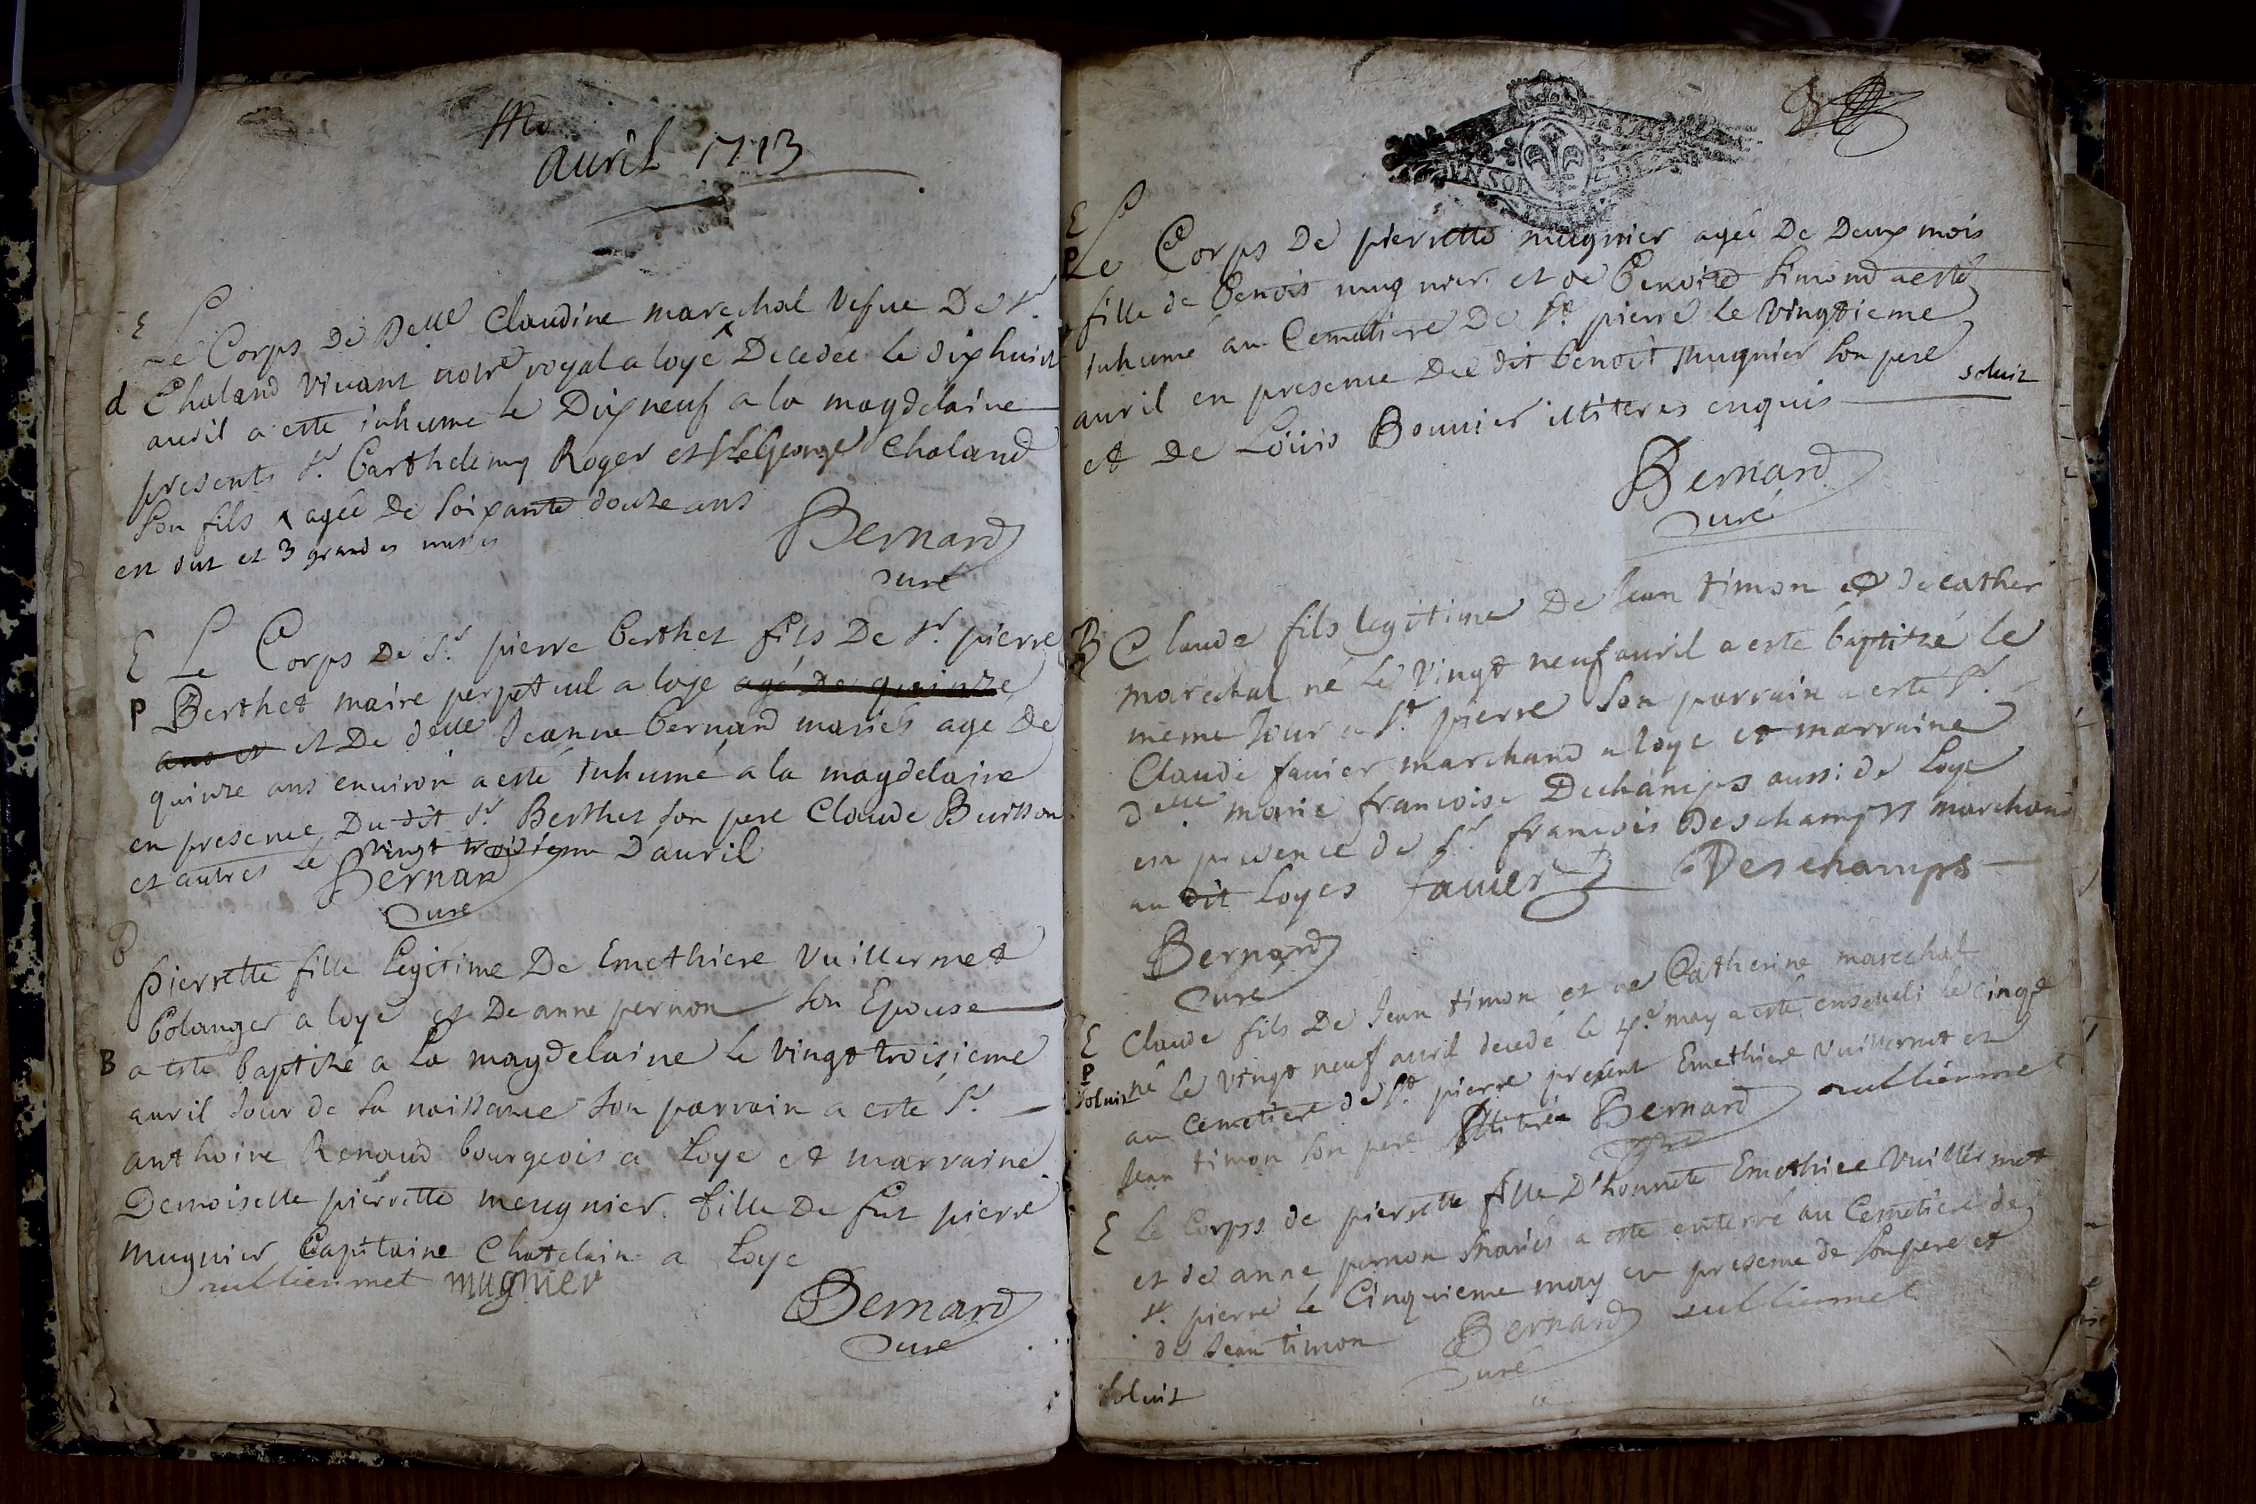 avril 1713
E
Le Corps De Delle Claudine marechal Vefue De Sr
d Chaland Vivant notre royal a loye Decedeé Le dix huit
avril a esté inhumé le Dix neuf a la magdelaine
presents Sr Barthelemy Roger et George Chaland
son fils agée De soixante douze ans
Bernard
curé
en dut et 3 grandes messes
E Le Corps De Sr pierre berthet fils De Sr pierre
P Berthet maire perpetuel a loye agé De quinze
ans et et De delle Jeanne bernard mariés agé de
quinze ans environ a esté inhumé a la magdelaine
en presence Du dit Sr Berthet son pere Claude Buisson
et autres le vingt troisieme d'avril
Bernard
curé
Pierrette fille legitime De Emethiere Vuillermet
bolanger a loye et De anne pernon son Epouse
B a esté baptizé a La magdelaine le vingt troisieme
avril Jour de sa naissance son parrain a esté Sr
anthoine Renaud bourgeois a Loye et marraine
Demoiselle pierrette meugnier fille De fut pierre
mugnier Capitaine Chatelain a Loye
vulliermet mugnier
Bernard
curé
E
P Le Corps De pierrette mugnier ageé De Deux mois
fille de benoit mugnier et de benoite simond a esté
inhumé au Cemetiere De St pierre le vingtieme
avril en presence Du dit benoit mugnier son pere
et De Loüis Bonnier illiteres enquis soluit
Bernard
curé
B Claude fils legitime De Jean timon et de cather
marechal né le vingt neuf avril a esté baptizé le
meme Jour a St pierre son parrain a esté Sr
Claude favier marchand a loye et marraine
Delle marie francoise Dechamps aussi de Loye
en presence de Sr francois Deschamps marchand
au dit Loyes favier Deschamps
Bernard
curé
E Claude fils De Jean timon et de Catherine marechal
P né le vingt neuf avril decedé le 4e may a esté enseveli le cinqe
soluit au Cemetiere de St pierre present Emethiere Vuillermet et
Jean timon son pere illiteré Bernard vulliermet
curé
E Le Corps de pierrette fille D'honnete Emethiere Vuillermet
et de anne pernon mariés a esté enterré au Cemetiere de
St pierre le Cinquieme may en presence de son pere et
de Jean timon Bernard vulliermet
curé
soluit